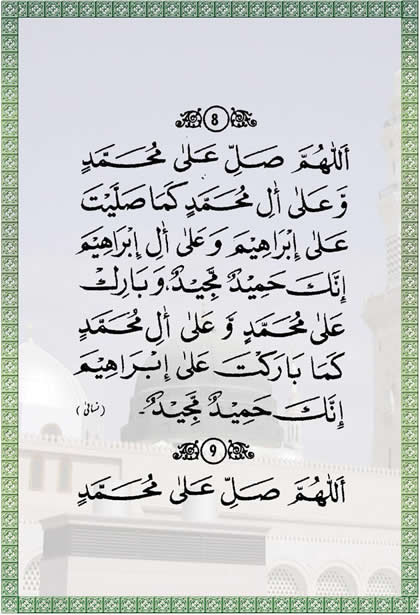 8
اَللّٰهُمَّ صَلِّ عَلٰى مُحَمَّدٍ
وَّعَلٰى اٰلِ مُحَمَّدٍ كَمَا صَلَّيْتَ
عَلٰى اِبْرَاهِيْمَ وَعَلٰى اٰلِ اِبْرَاهِيْمَ
اِنَّكَ حَمِيْدٌ مَّجِيْدٌ، وَبَارِكْ
عَلٰى مُحَمَّدٍ وَّ عَلٰى اٰلِ مُحَمَّدٍ
كَمَا بَارَكْتَ عَلٰى اِبْرَاهِيْمَ
اِنَّكَ حَمِيْدٌ مَّجِيْدٌ۔ (نسائی)
9
اَللّٰهُمَّ صَلِّ عَلٰى مُحَمَّدٍ